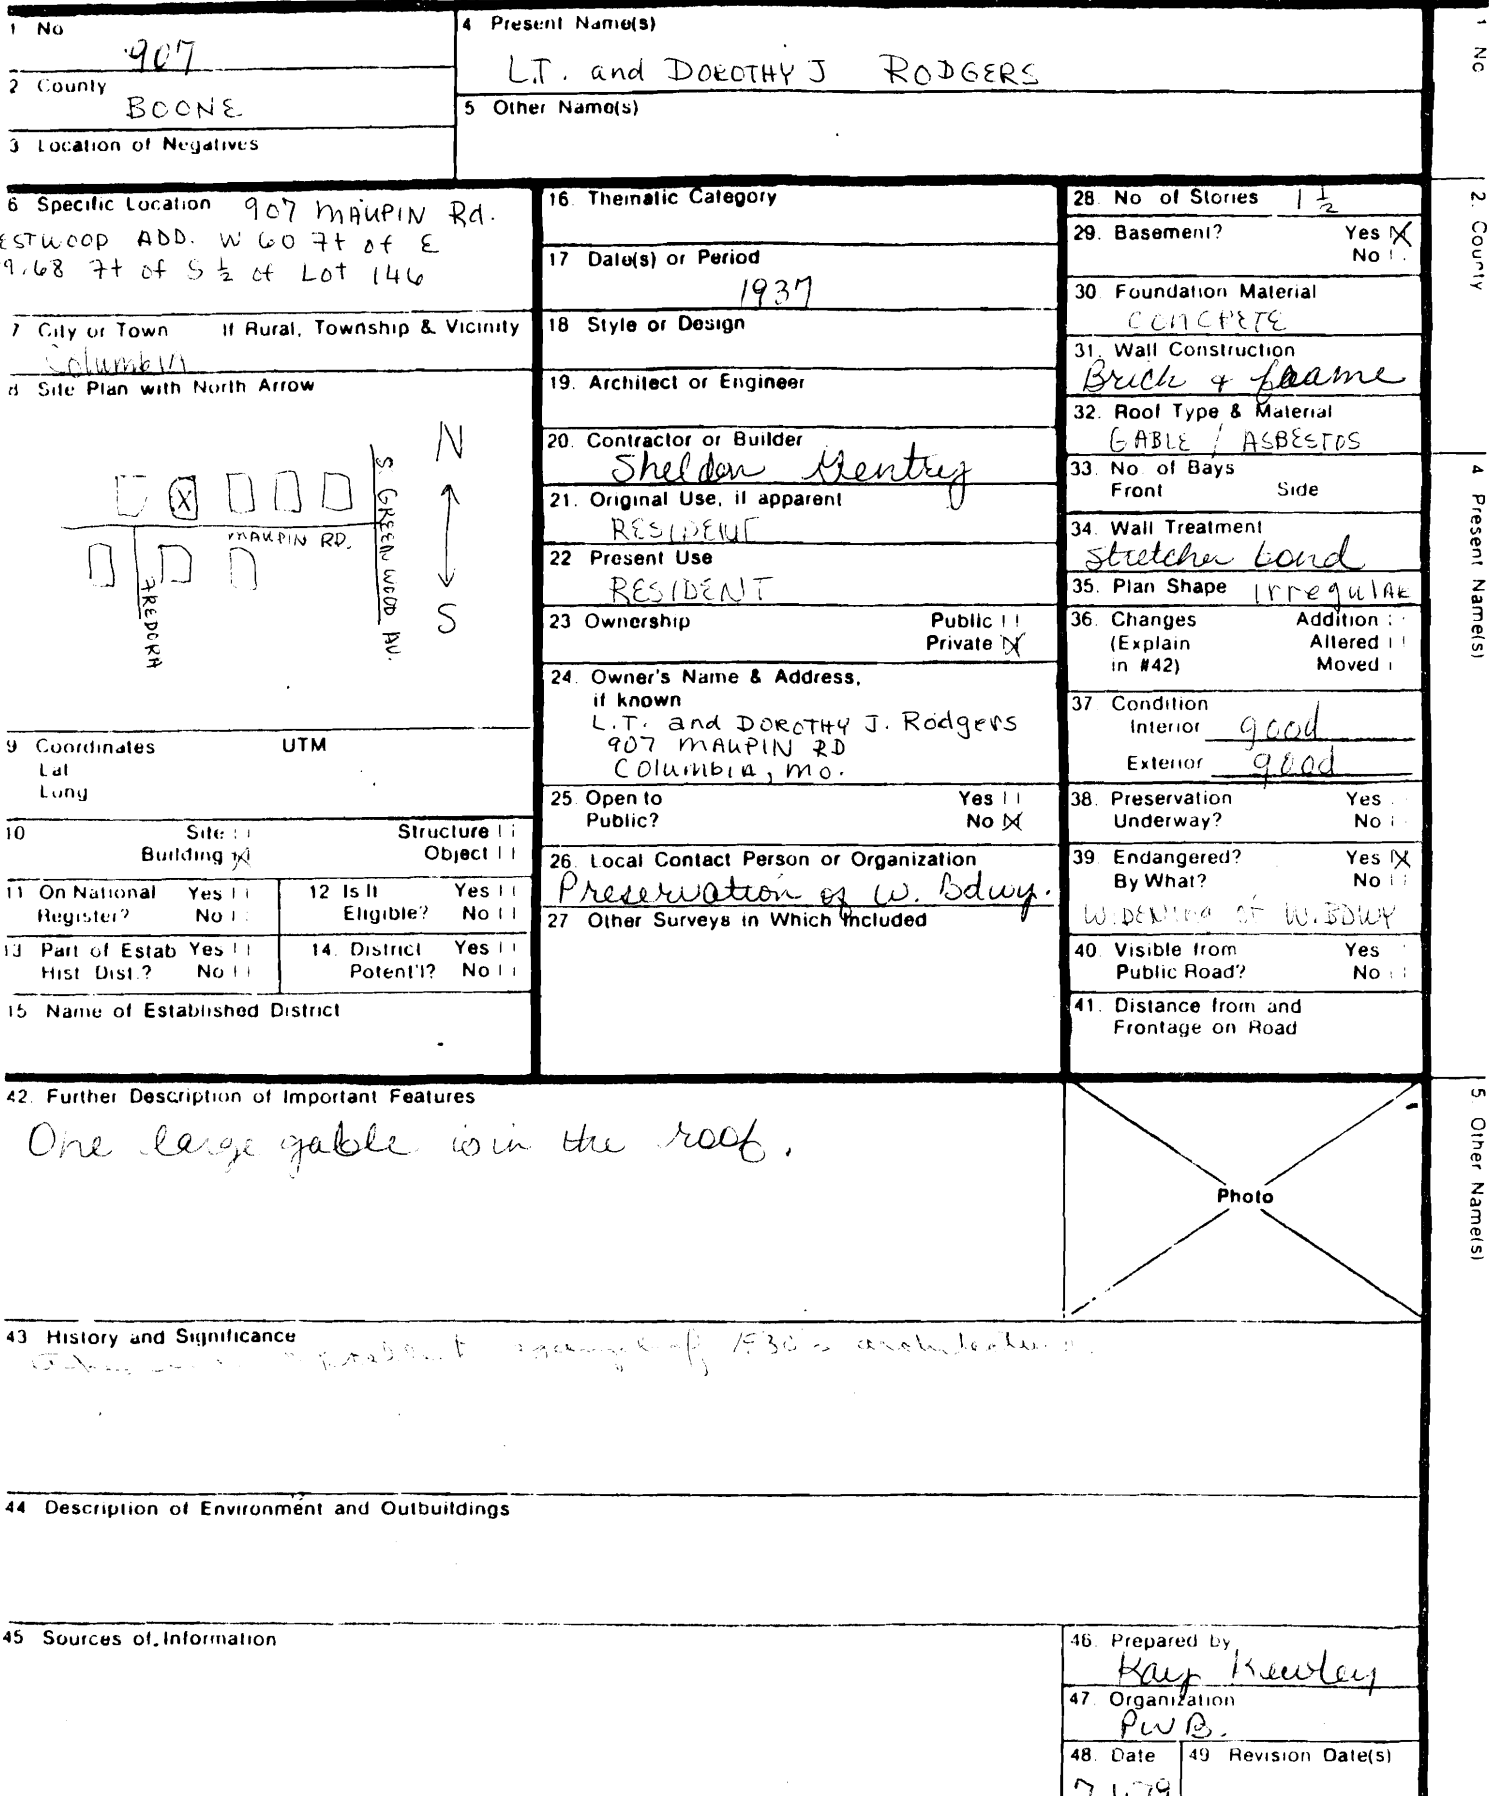 1 No
907
4 Present Name(s)
L.T. and DOROTHY J RODGERS
2 County
BOONE
5 Other Name(s)
3 Location of Negatives
6 Specific Location 907 MAUPIN Rd.
ESTWOOD ADD. W 60 7t of E
9.68 7t of S ½ of Lot 146
7 City or Town If Rural, Township & Vicinity
Columbia
8 Site Plan with North Arrow
N
X
MAUPIN RD.
S. GREENWOOD AV.
FREDORA
S
9 Coordinates UTM
Lat
Long
10 Site Structure
Building X Object
11 On National Register? Yes No
12 Is It Eligible? Yes No
13 Part of Estab Hist Dist.? Yes No
14. District Potent'l? Yes No
15 Name of Established District
16. Thematic Category
17 Date(s) or Period
1937
18 Style or Design
19. Architect or Engineer
20. Contractor or Builder
Sheldon Gentry
21. Original Use, if apparent
RESIDENT
22 Present Use
RESIDENT
23 Ownership Public
Private X
24. Owner's Name & Address,
if known
L.T. and DOROTHY J. Rodgers
907 MAUPIN RD
COlumbia, Mo.
25. Open to Yes
Public? No X
26. Local Contact Person or Organization
Preservation of W. Bdwy.
27 Other Surveys in Which Included
28. No of Stories 1 ½
29. Basement? Yes X
No
30. Foundation Material
CONCRETE
31. Wall Construction
Brick & frame
32. Roof Type & Material
GABLE / ASBESTOS
33. No. of Bays
Front Side
34. Wall Treatment
Stretcher bond
35. Plan Shape Irregular
36. Changes Addition
(Explain Altered
in #42) Moved
37. Condition
Interior good
Exterior good
38. Preservation Yes
Underway? No
39. Endangered? Yes X
By What? No
WIDENING OF W. BDWY
40. Visible from Yes
Public Road? No
41. Distance from and
Frontage on Road
42. Further Description of Important Features
One large gable is in the roof.
Photo
43 History and Significance
example of 1930's architecture.
44 Description of Environment and Outbuildings
45 Sources of Information
46. Prepared by
Kay Kewley
47. Organization
PWB.
48. Date 49 Revision Date(s)
1 No
2. County
4 Present Name(s)
5. Other Name(s)